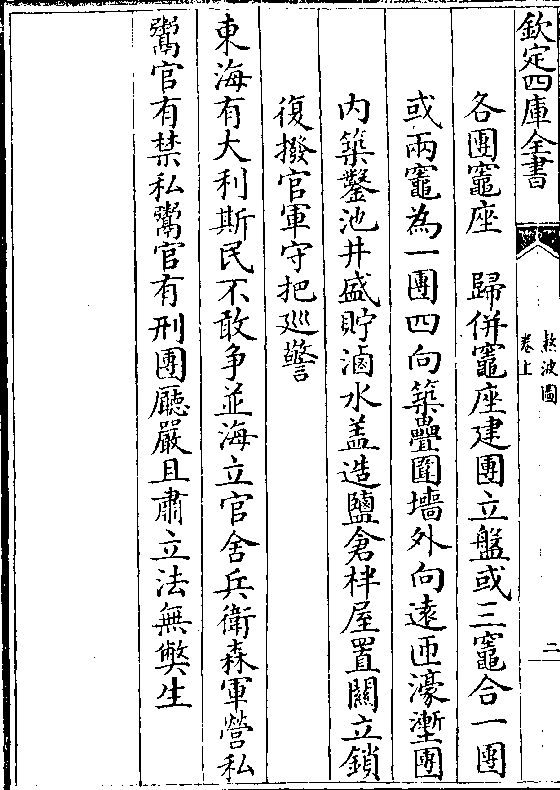 欽定四庫全書
熬波圖
卷上
二
各團竈座　歸併竈座建團立盤或三竈合一團
或兩竈為一團四向築疊圍墻外向遠匝濠塹團
内築鑿池井盛貯滷水盖造鹽倉柈屋置關立鎖
復撥官軍守把廵警
東海有大利斯民不敢争並海立官舍兵衛森軍營私
鬻官有禁私鬻官有刑團廳嚴且肅立法無獘生